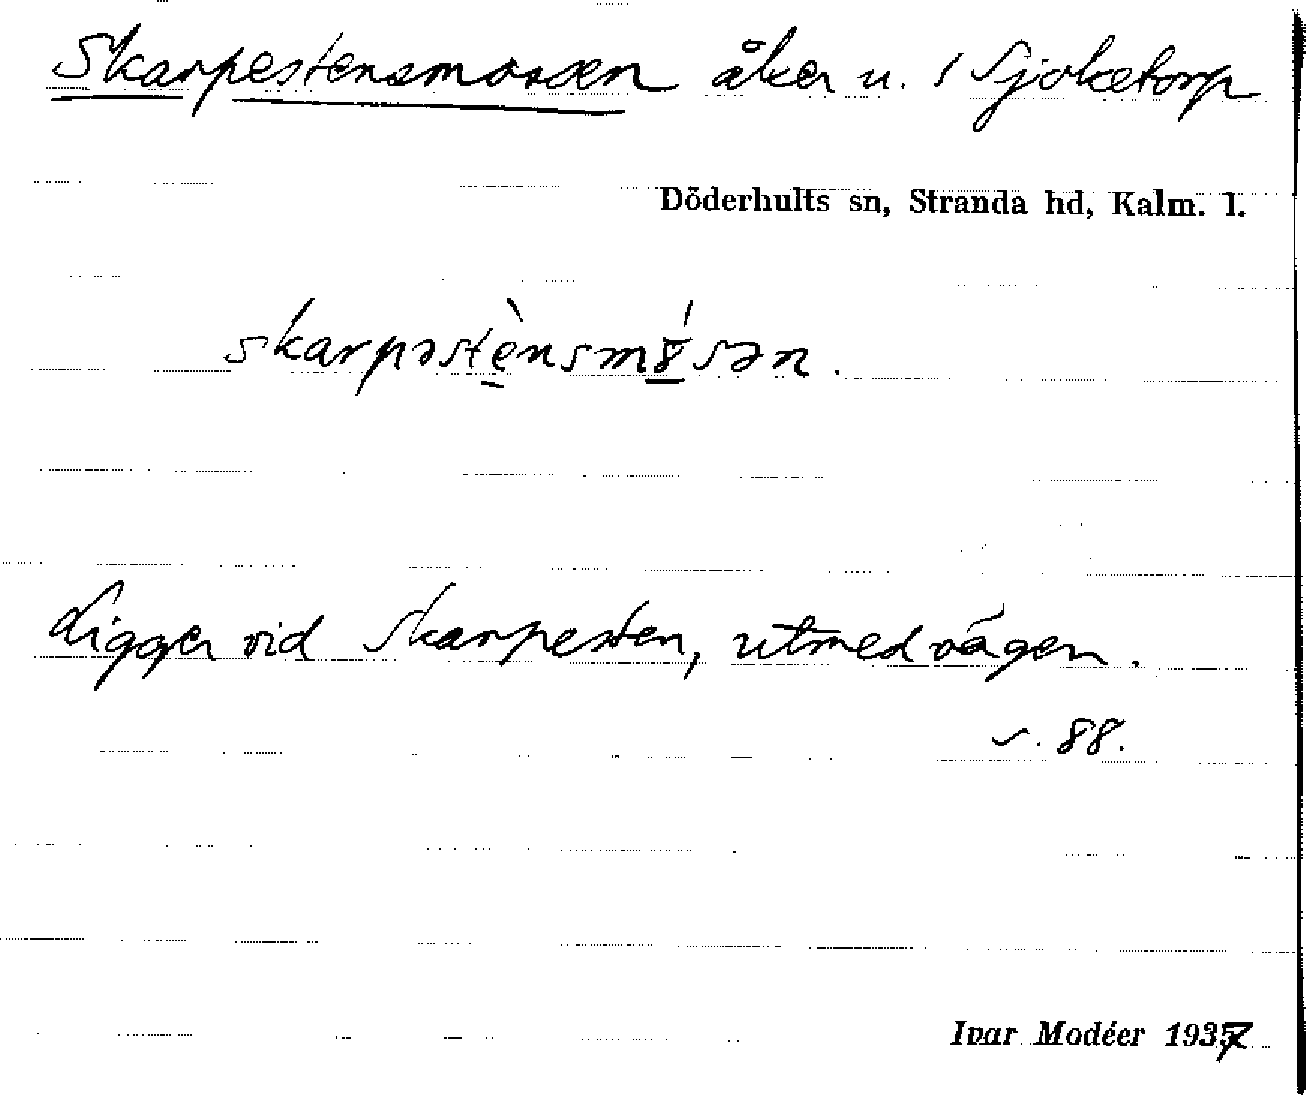 Skarpestensmossen åker u. 1 Sjoketorp
Döderhults sn, Stranda hd, Kalm. l.
skarpəstènsmø̀sən.
Ligger vid Skarpesten, utmed vägen.
s. 88.
Ivar Modéer 1937